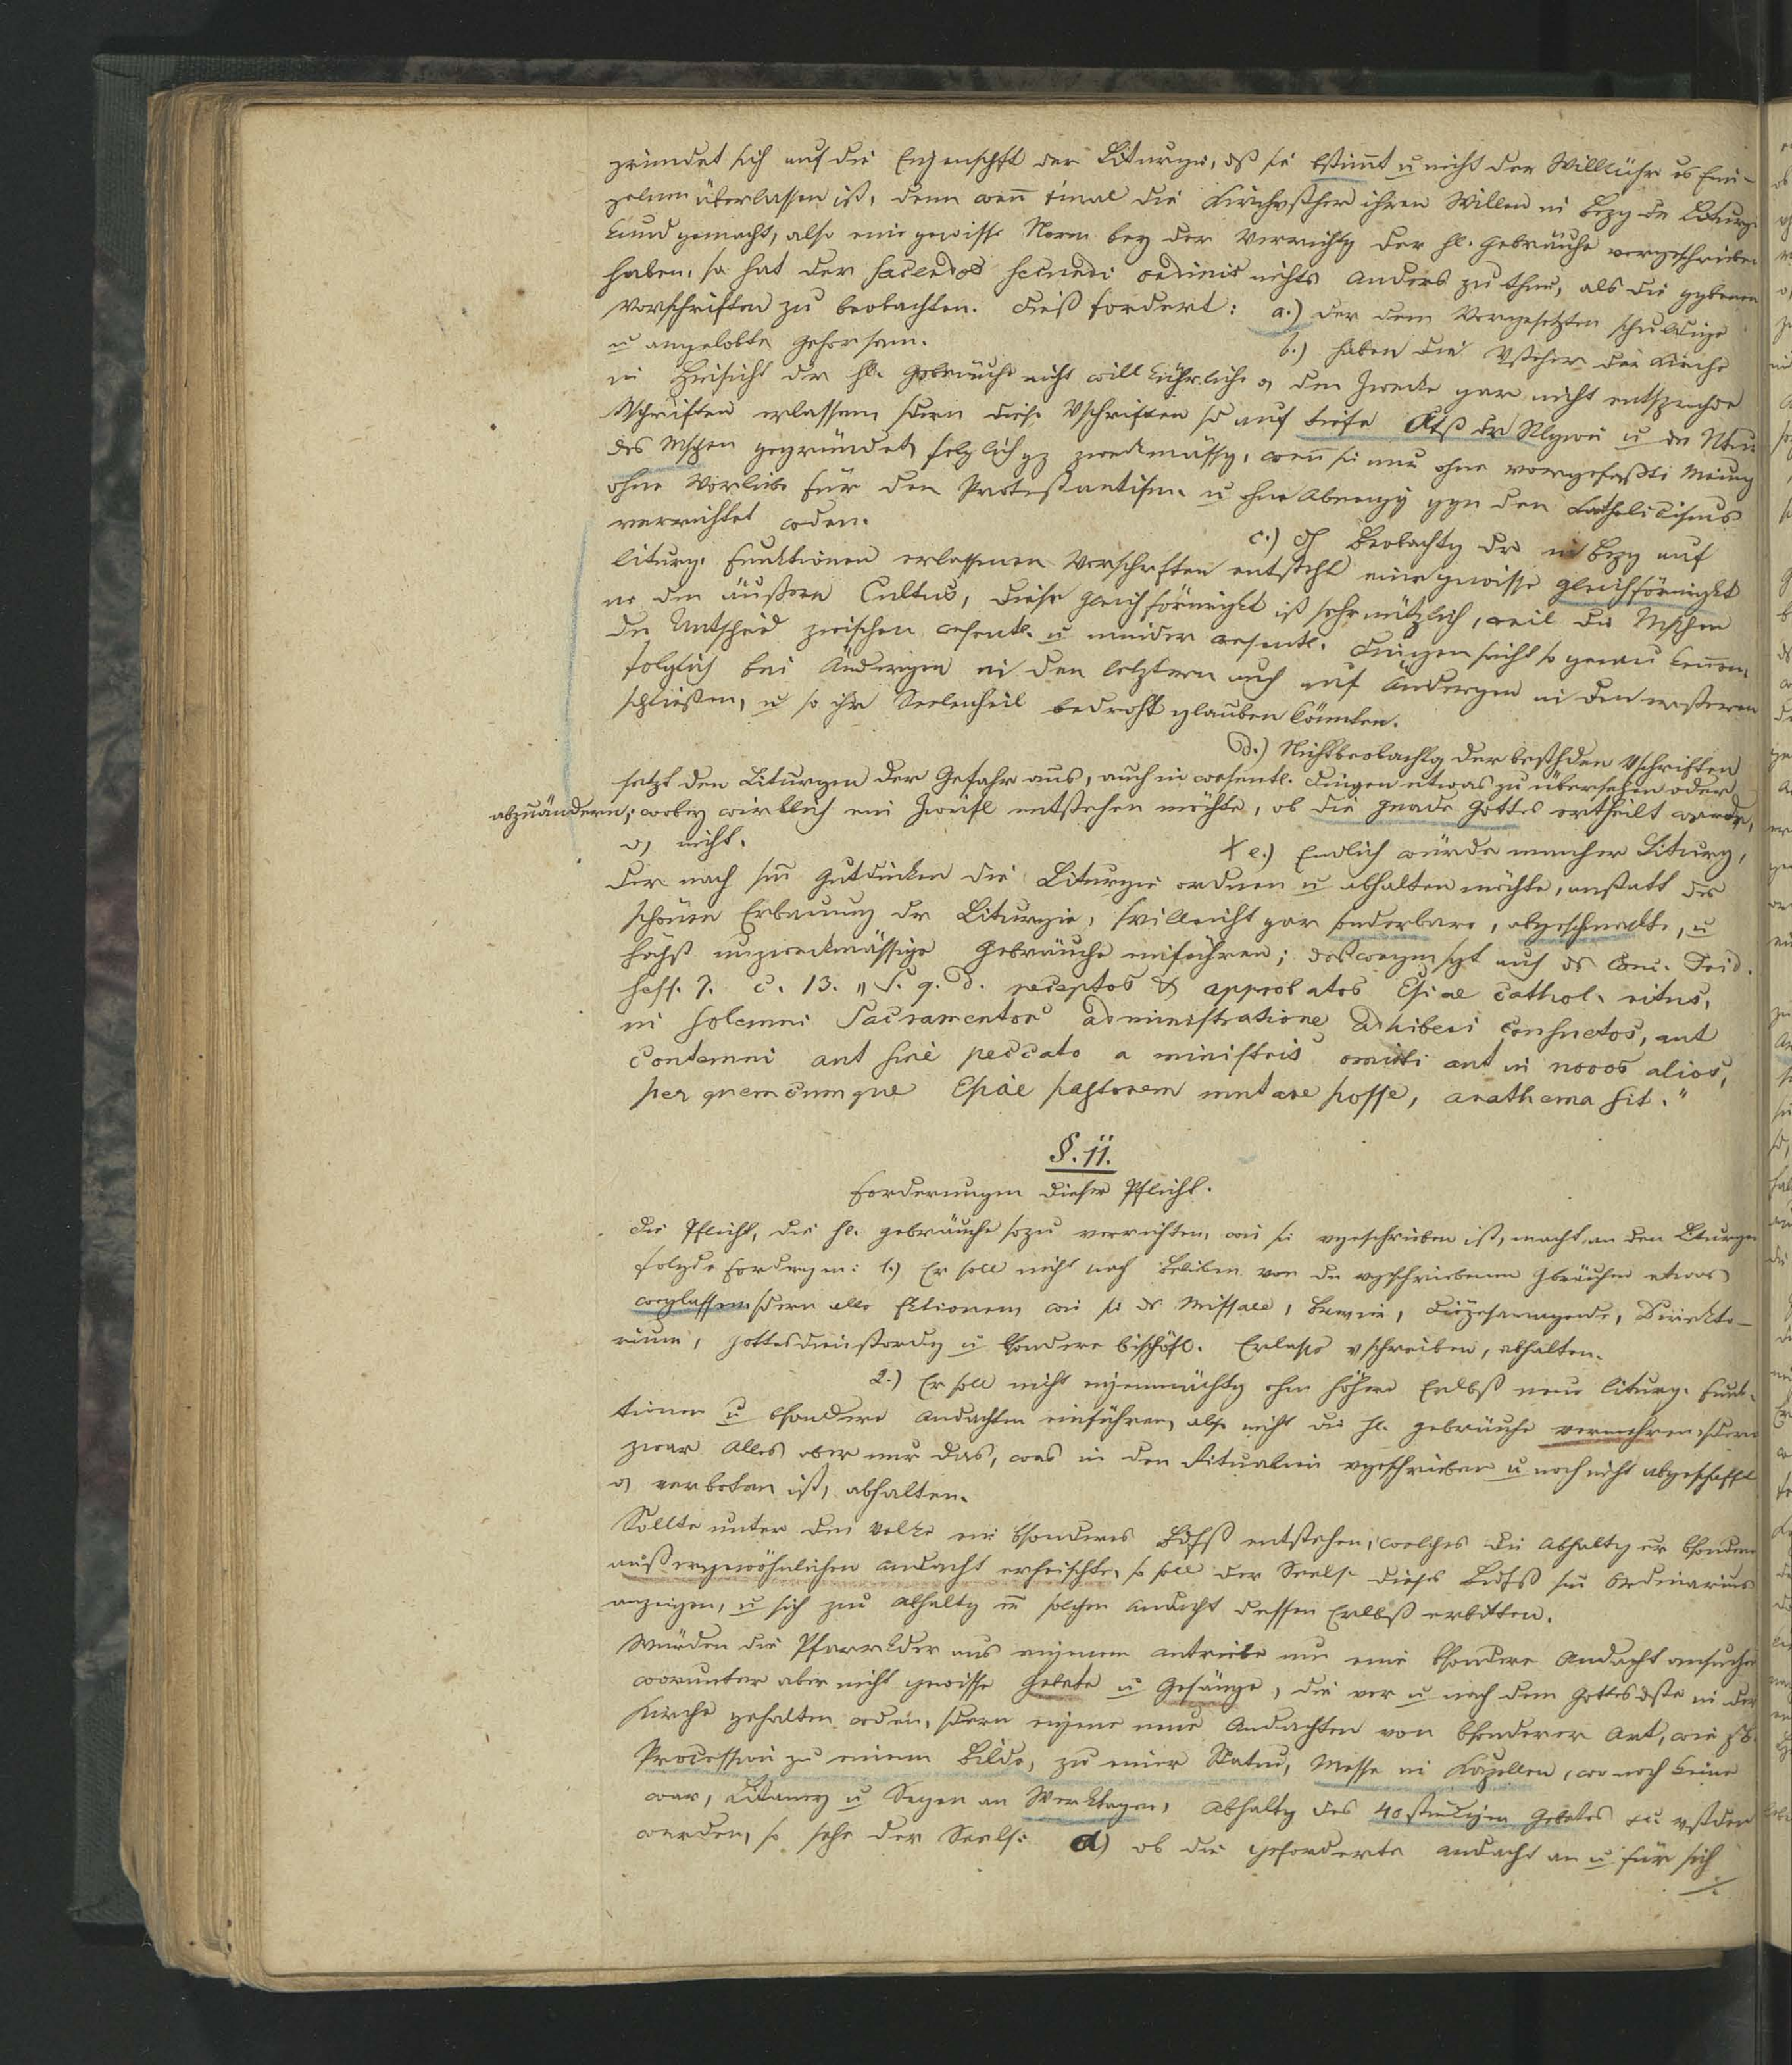 gründet sich auf die Eigenschft der Liturgie, dß sie bstimt u nicht der Willkühr es Ein-
zelnen überlassen ist, denn wenn einal die Kirchvsther ihren Willen in Bzg der Liturgie
kund gemacht, also eine gewisse Norm bey der Verrichtg der hl. Gebräuche vorgeschrieben
haben, so hat der sacerdos secundi ordinis nichts anders zu thun, als die ggbenen
Vorschriften zu beobachten. Dieß fordert: a.) der dem Vorgesetzten schuldige
u angelobte Gehorsam.
b.) haben die Vsteher der Kirche
in Hinsicht der hl. Gebräuche nicht willkührliche od den Zwecke gar nicht entsprchde
Vschriften erlassen, sdern diese Vschriften sd auf tiefe der Rlgion u der Ntur
des Mschen gegründet, folglich gz zweckmässig, wenn sie nur ohne vorgefaßte Meinung
ohne Vorliebe für den Protestantism. u ohne Abneigg ggn den Catholicismus
verrichtet wden.
c.) Dch Beobachtg der in Bzg auf
liturg. Funktionen erlassenen Vorschriften entsteht eine gewisse Gleichförmigkt
in den äußern Cultus, diese Gleichförmigkt ist sehr nützlich, weil die Mschen
den Untschied zwischen wesentl. u minder wesentl. Dingen nicht so genau kennen,
folglich bei Ändergen in den letztern auch auf Ändergen in den ersteren
schließen, u so ihr Seelenheil bedroht glauben könnten.
d.) Nichtbeobachtg der bsthden Vschriften
setzt den Liturgen der Gefahr aus, auch in wesentl. Dingen etwas zu übersehen oder
abzuändern; wobey wirklich ein Zweifl entstehen möchte, ob die Gnade Gottes ertheilt werde,
od nicht.
+ e.) Endlich würde mancher Liturg,
der nach sm Gutdünken die Liturgie ordnen u abhalten möchte, anstatt der
schönen Erbauung der Liturgie, vielleicht gar sonderbare, abgeschmackte, u
höchst unzweckmässige Gebräuche einführen; deswegen sgt auch ds Conc. Trid.
sess. 7. c. 13. „S. q. d. receptos & approbatos Eccl­ae cathol. ritus,
in solemni Sacramentor administratione adhiberi consuetos, aut
contemni aut sine peccato a ministris omitti aut in novos alios,
per quemcumque Eccl­ae pastorem mutare posse, anathema sit."
§. 11.
Forderungen dieser Pflicht.
Die Pflicht, die hl. Gebräuche so zu verrichten, wie sie vgeschrieben ist, macht an den Liturgen
folgde Fordrgen: 1.) Er soll nicht nach Belieben von den vgschriebenen Gbräuchen etwas
weglassen, sdern alle Fktionen, wie sie ds Missale, Brevier, Diözesanagende, Direkto-
rium, Gottesdienstordg u bsondere bischöfl. Erlasse vschreiben, abhalten.
2.) Er soll nicht eigenmächtg ohne höhere Erlbß neue liturg. Funk-
tionen u bsondere Andachten einführen, also nicht die hl. Gebräuche vermehren, sdern
zwar Alles aber nur das, was in den Ritualien vgeschrieben u noch nicht abgeschafft
od verboten ist, abhalten.
Sollte unter den Volke ein bsonderes Bdfß entstehen, welches die Abhaltg er bsondern
außergewöhnlichen Andacht erheischte, so soll der Seels. dieses Bedfß sm Ordinarius
anzeigen, u sich zur Abhaltg er solchen Andacht dessen Erlbß erbitten.
Würden die Pfarrkder aus eigenem Antriebe um eine bsondere Andacht ansuchen
worunter aber nicht gewisse Gebete u Gesänge, die vor u nach dem Gottesdste in der
Kirche gehalten wden, sdern eigene neue Andachten von bsonderer Art, wie zB.
Procession zu einem Bilde, zu einer Statue, Messe in Kapellen, wo noch keine
war, Litaney u Segen an Werktagen, Abhaltg des 40 stündigen Gebetes etc vstden
werden, so sehe der Seels. a) ob die geforderte Andacht an u für sich